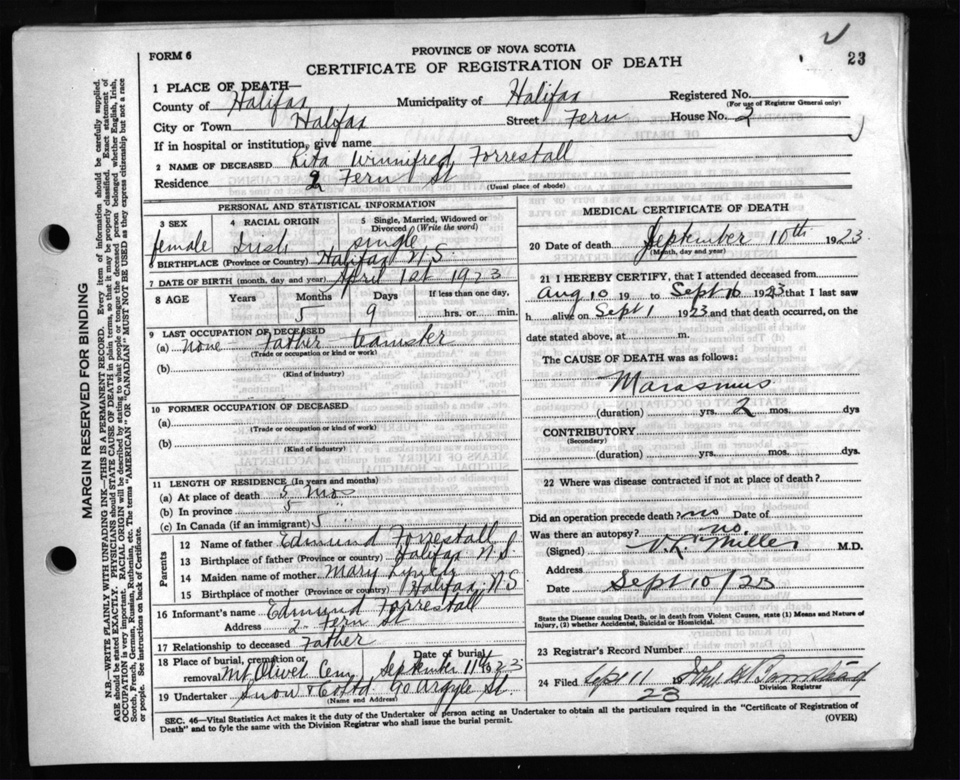 23
FORM 6
PROVINCE OF NOVA SCOTIA
CERTIFICATE OF REGISTRATION OF DEATH
1 PLACE OF DEATH—
County of Halifax Municipality of Halifax Registered No.
(For use of Registrar General only)
City or Town Halifax Street Fern House No. 2
If in hospital or institution, give name
2 NAME OF DECEASED Rita Winnifred Forrestall
Residence 2 Fern St
(Usual place of abode)
PERSONAL AND STATISTICAL INFORMATION
3 SEX 4 RACIAL ORIGIN 5 Single, Married, Widowed or Divorced (Write the word)
female Irish single
6 BIRTHPLACE (Province or Country) Halifax N.S.
7 DATE OF BIRTH (month, day and year) April 1st 1923
8 AGE Years Months Days If less than one day,
5 9 hrs. or min.
9 LAST OCCUPATION OF DECEASED
(a) None Father teamster
(Trade or occupation or kind or work)
(b)
(Kind of industry)
10 FORMER OCCUPATION OF DECEASED
(a)
(Trade or occupation or kind of work)
(b)
(Kind of industry)
11 LENGTH OF RESIDENCE (In years and months)
(a) At place of death 5 mos
(b) In province 5 "
(c) In Canada (if an immigrant) 5 "
Parents
12 Name of father Edmund Forrestall
13 Birthplace of father (Province or country) Halifax N.S.
14 Maiden name of mother Mary
15 Birthplace of mother (Province or country) Halifax N.S
16 Informant's name Edmund Forrestall
Address 2 Fern St
17 Relationship to deceased Father
18 Place of burial, cremation or removal Mt Olivet Cem Date of burial September 11th 1923
19 Undertaker Snow & Co Ltd 90 Argyle St.
(Name and Address)
MEDICAL CERTIFICATE OF DEATH
20 Date of death September 10th 1923
(Month, day and year)
21 I HEREBY CERTIFY, that I attended deceased from
Aug 10 19 to Sept 10 1923 that I last saw
h alive on Sept 1 1923 and that death occurred, on the
date stated above, at m.
The CAUSE OF DEATH was as follows:
Marasmus
(duration) yrs. 2 mos. dys
CONTRIBUTORY
(Secondary)
(duration) yrs. mos. dys.
22 Where was disease contracted if not at place of death?
Did an operation precede death? no Date of
Was there an autopsy? no
(Signed) Miller M.D.
Address
Date Sept 10/23
State the Disease causing Death, or in Death from Violent Causes, state (1) Means and Nature of
Injury, (2) whether Accidental, Suicidal or Homicidal.
23 Registrar's Record Number
24 Filed Sept 11
23
Division Registrar
SEC. 46—Vital Statistics Act makes it the duty of the Undertaker or person acting as Undertaker to obtain all the particulars required in the "Certificate of Registration of
Death" and to fyle the same with the Division Registrar who shall issue the burial permit.
(OVER)
MARGIN RESERVED FOR BINDING
N.B.—WRITE PLAINLY WITH UNFADING INK—THIS IS A PERMANENT RECORD. Every item of information should be carefully supplied.
AGE should be stated EXACTLY. PHYSICIANS should STATE CAUSE OF DEATH in plain terms, so that it may be properly classified. Exact statement of
OCCUPATION is very important. RACIAL ORIGIN will be described by stating to what people or tongue the deceased person belonged whether English, Irish,
Scotch, French, German, Russian, Ruthenian, etc. The terms "AMERICAN" or "CANADIAN" MUST NOT BE USED as they express citizenship but not a race
or people. See instructions on back of Certificate.